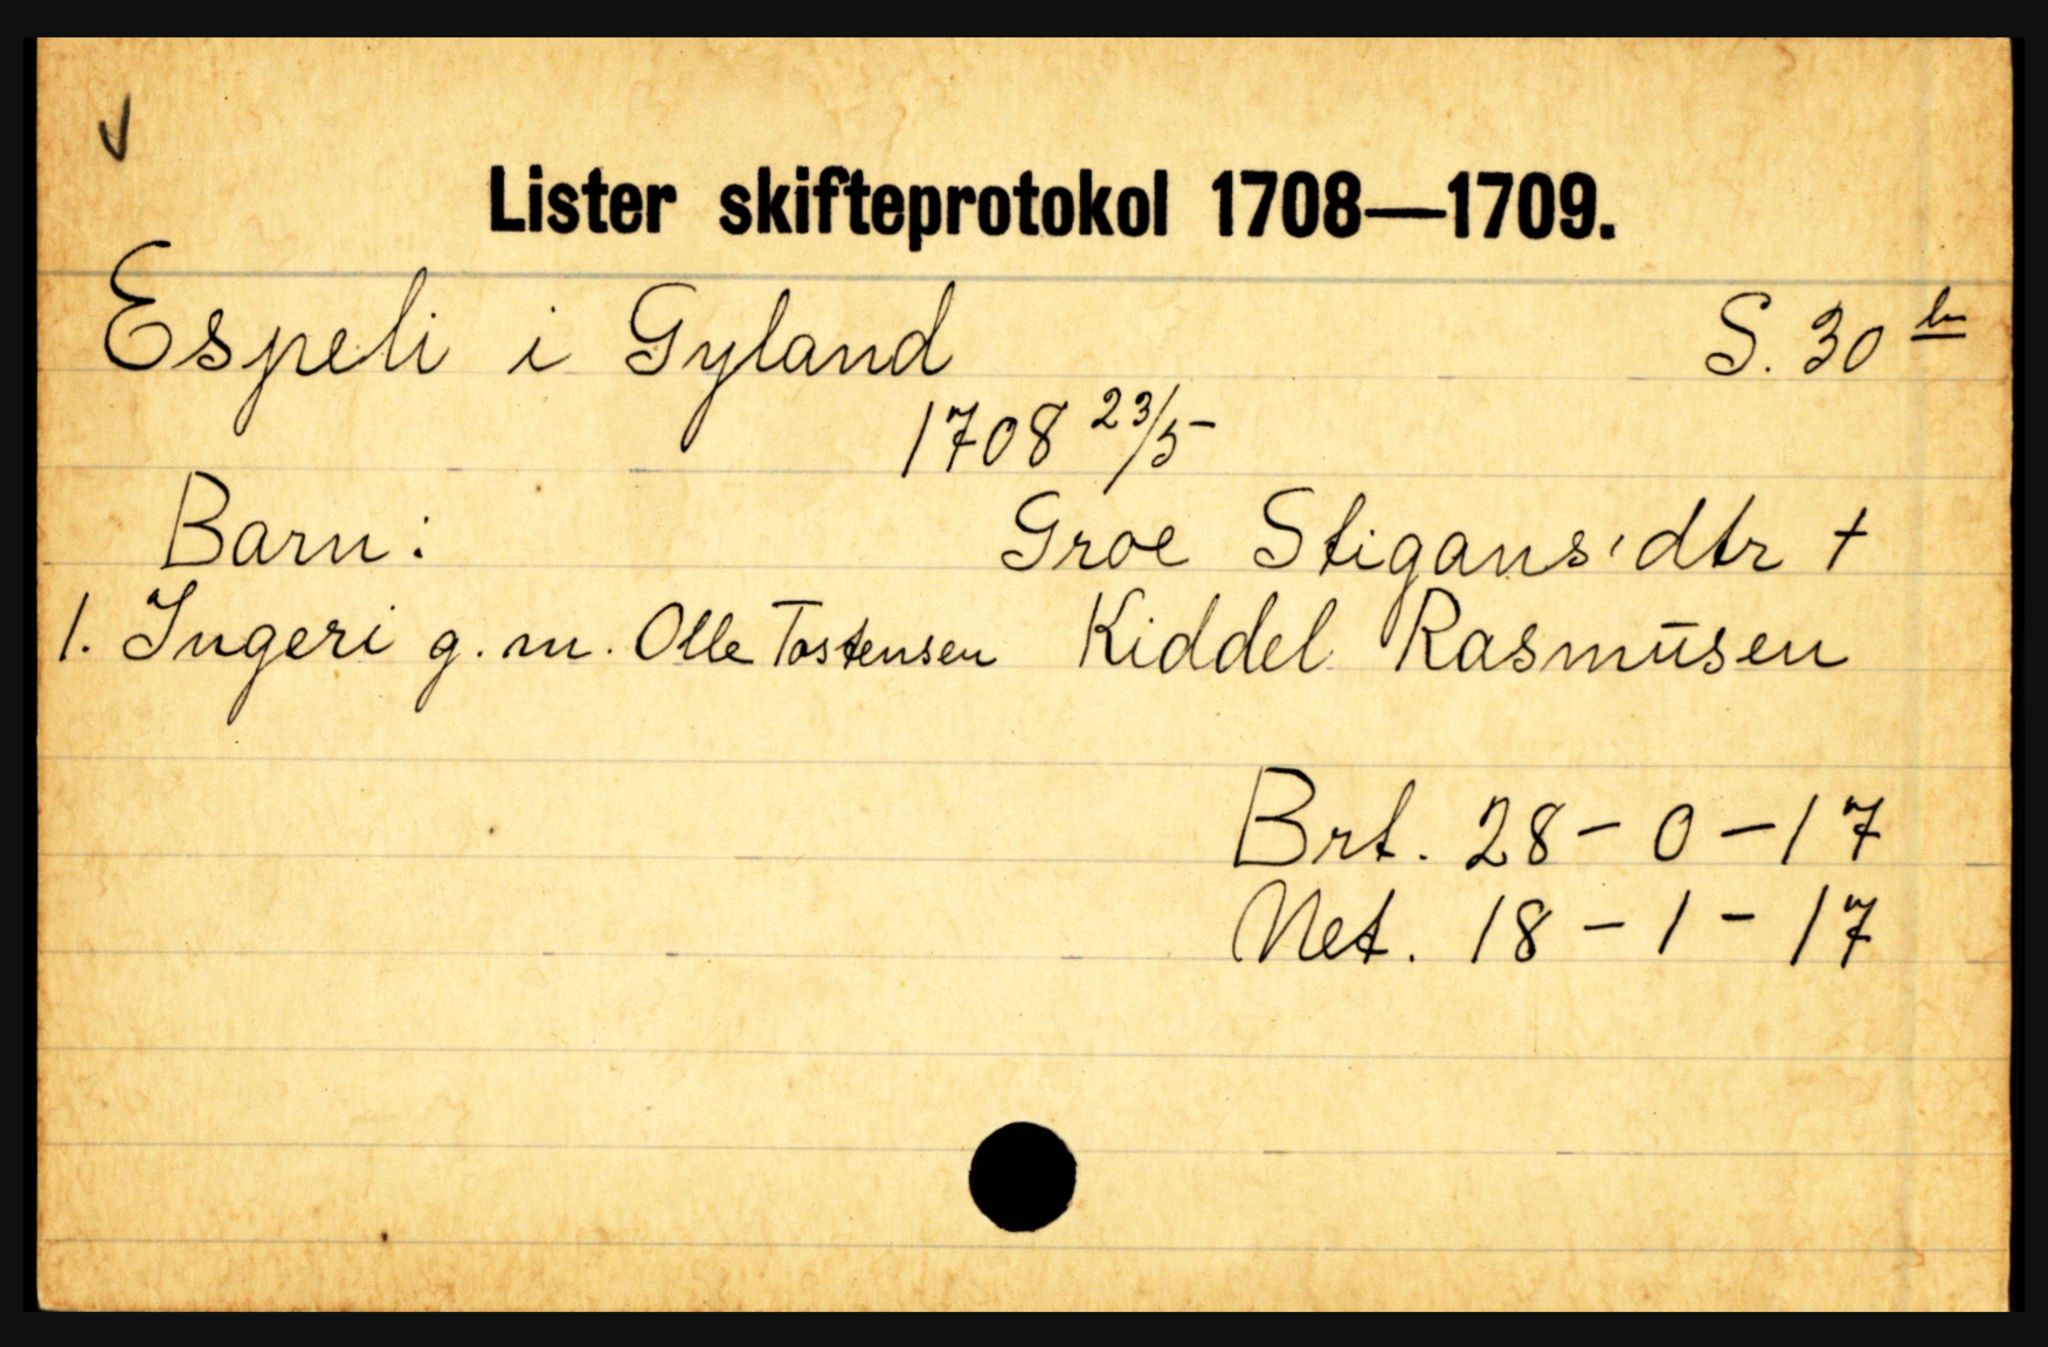 Lister skifteprotokol 1708—1709.
Espeli i Gyland S. 30 b
1708 23/5
Barn: Groe Stigans'dtr +
1. Ingeri g. m. Olle Tostensen Kiddel Rasmūsen
Brt. 28 - 0 - 17
Net. 18 - 1 - 17